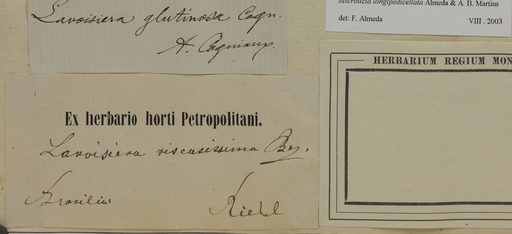 Lavoisiera glutinosa Cogn.
A. Cogniaux
Microlicia longipedicellata Almeda & A. B. Martins
det: F. Almeda VIII. 2003
HERBARIUM REGIUM MON
Ex herbario horti Petropolitani.
Lavoisiera viscosissima
Brasilia Riedel